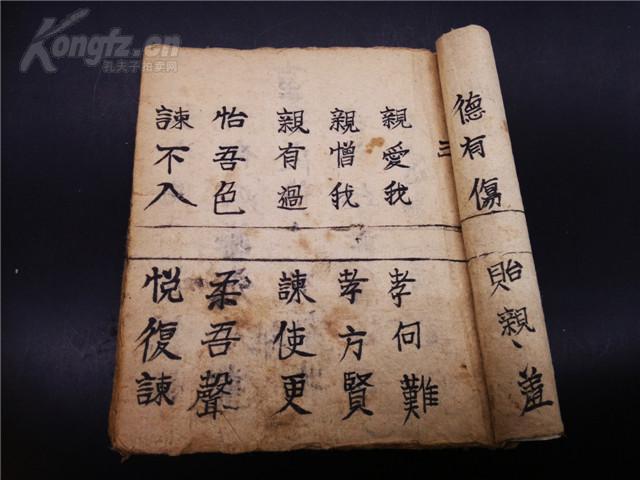 Kongfz.cn
孔夫子拍卖网
德有傷
貽親羞
三
親愛我
孝何難
親憎我
孝方賢
親有過
諫使更
怡吾色
柔吾聲
諫不入
悦復諫